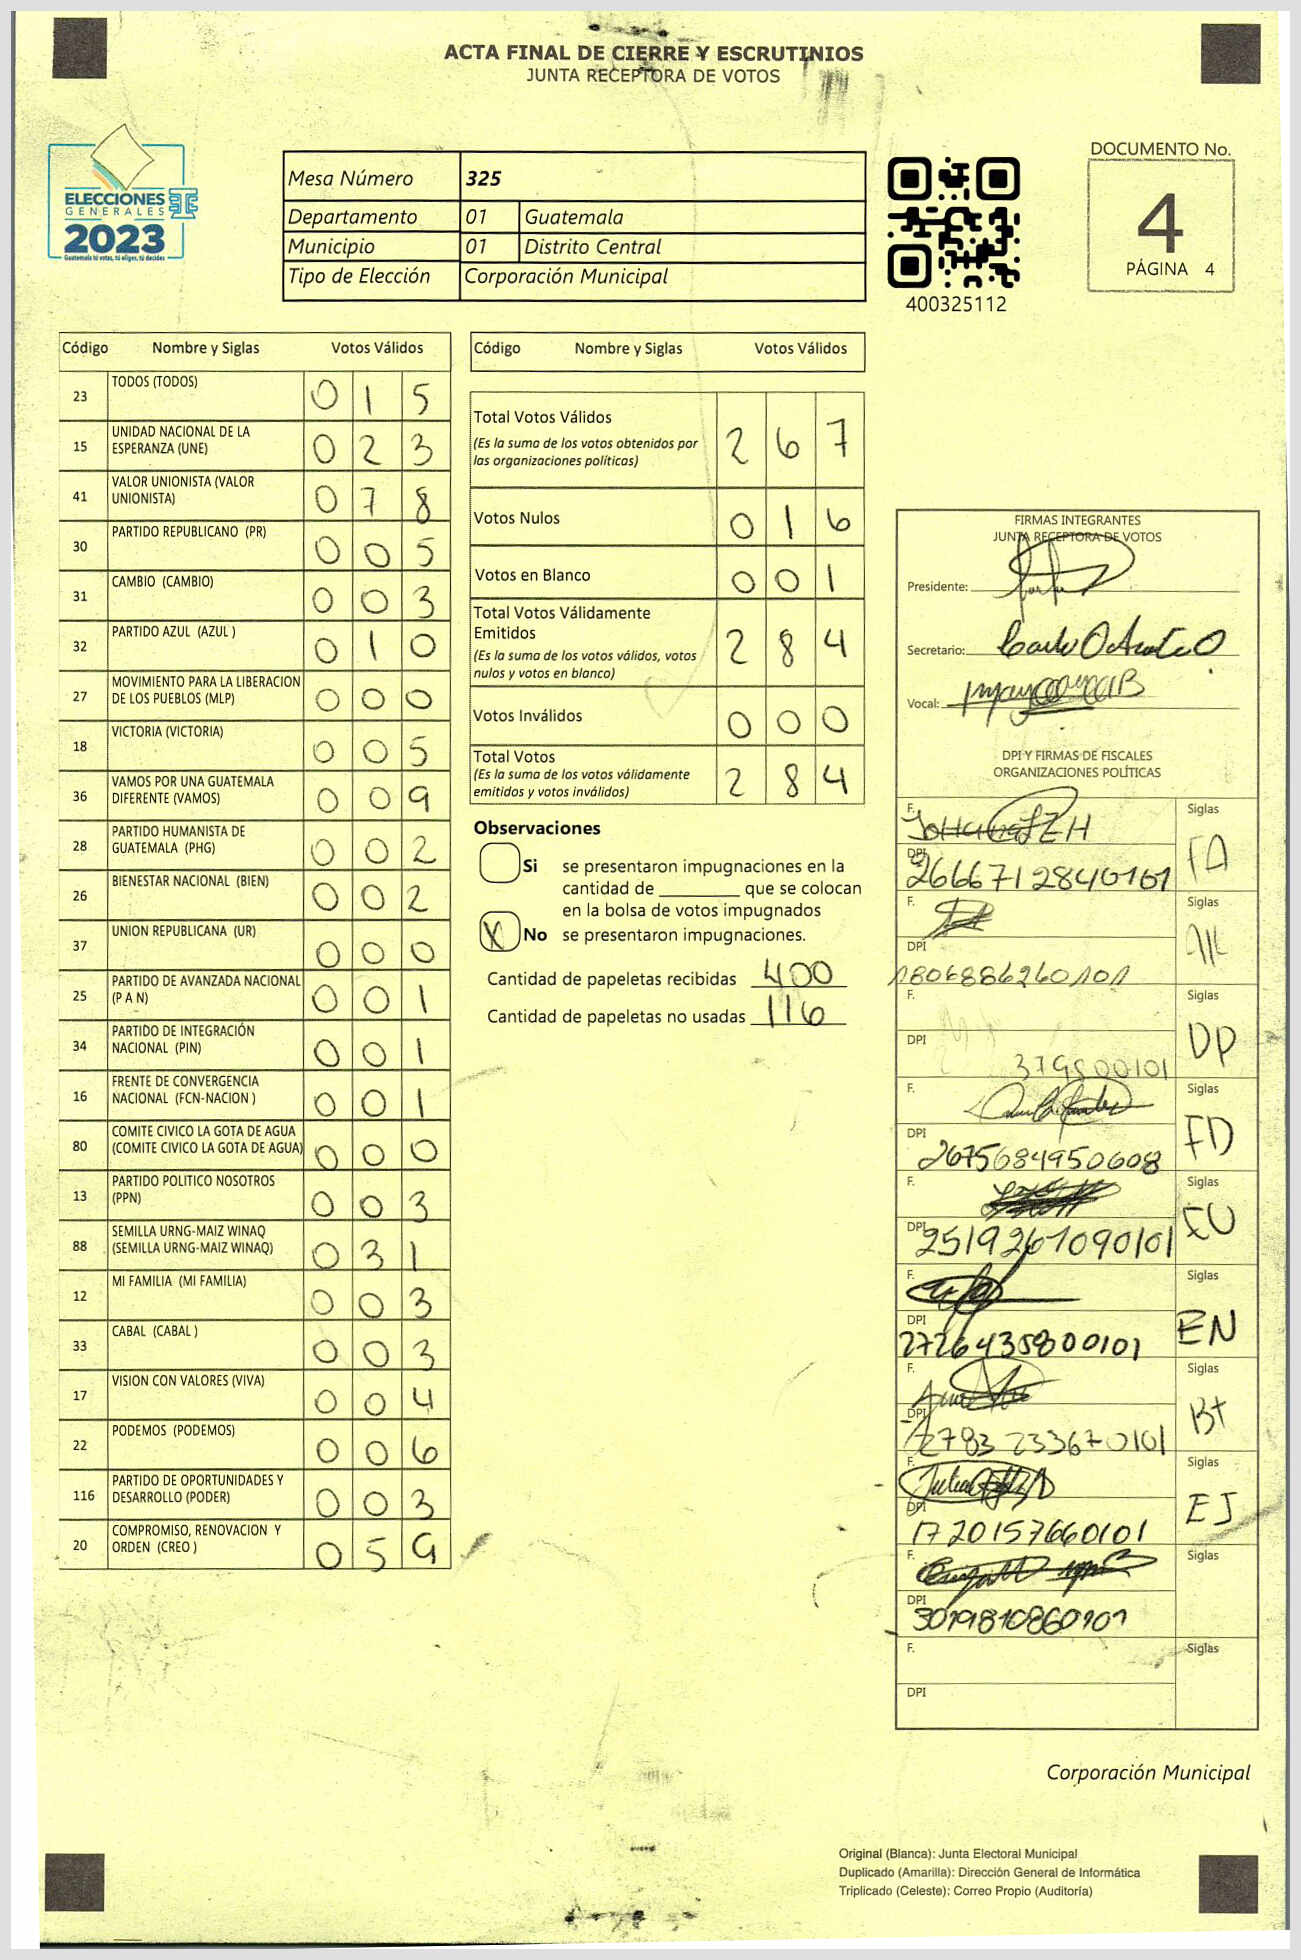 ACTA FINAL DE CIERRE Y ESCRUTINIOS
JUNTA RECEPTORA DE VOTOS
ELECCIONES
GENERALES
2023
Guatemala tú votas, tú eliges, tú decides
Mesa Número 325
Departamento 01 Guatemala
Municipio 01 Distrito Central
Tipo de Elección Corporación Municipal
400325112
DOCUMENTO No.
4
PÁGINA 4
Código Nombre y Siglas Votos Válidos
23 TODOS (TODOS) 0 1 5
15 UNIDAD NACIONAL DE LA ESPERANZA (UNE) 0 2 3
41 VALOR UNIONISTA (VALOR UNIONISTA) 0 7 8
30 PARTIDO REPUBLICANO (PR) 0 0 5
31 CAMBIO (CAMBIO) 0 0 3
32 PARTIDO AZUL (AZUL ) 0 1 0
27 MOVIMIENTO PARA LA LIBERACION DE LOS PUEBLOS (MLP) 0 0 0
18 VICTORIA (VICTORIA) 0 0 5
36 VAMOS POR UNA GUATEMALA DIFERENTE (VAMOS) 0 0 9
28 PARTIDO HUMANISTA DE GUATEMALA (PHG) 0 0 2
26 BIENESTAR NACIONAL (BIEN) 0 0 2
37 UNION REPUBLICANA (UR) 0 0 0
25 PARTIDO DE AVANZADA NACIONAL (P A N) 0 0 1
34 PARTIDO DE INTEGRACIÓN NACIONAL (PIN) 0 0 1
16 FRENTE DE CONVERGENCIA NACIONAL (FCN-NACION ) 0 0 1
80 COMITE CIVICO LA GOTA DE AGUA (COMITE CIVICO LA GOTA DE AGUA) 0 0 0
13 PARTIDO POLITICO NOSOTROS (PPN) 0 0 3
88 SEMILLA URNG-MAIZ WINAQ (SEMILLA URNG-MAIZ WINAQ) 0 3 1
12 MI FAMILIA (MI FAMILIA) 0 0 3
33 CABAL (CABAL ) 0 0 3
17 VISION CON VALORES (VIVA) 0 0 4
22 PODEMOS (PODEMOS) 0 0 6
116 PARTIDO DE OPORTUNIDADES Y DESARROLLO (PODER) 0 0 3
20 COMPROMISO, RENOVACION Y ORDEN (CREO ) 0 5 9
Código Nombre y Siglas Votos Válidos
Total Votos Válidos 2 6 7
(Es la suma de los votos obtenidos por
las organizaciones políticas)
Votos Nulos 0 1 6
Votos en Blanco 0 0 1
Total Votos Válidamente
Emitidos 2 8 4
(Es la suma de los votos válidos, votos
nulos y votos en blanco)
Votos Inválidos 0 0 0
Total Votos 2 8 4
(Es la suma de los votos válidamente
emitidos y votos inválidos)
Observaciones
Si se presentaron impugnaciones en la
cantidad de ________ que se colocan
en la bolsa de votos impugnados
X No se presentaron impugnaciones.
Cantidad de papeletas recibidas 400
Cantidad de papeletas no usadas 116
FIRMAS INTEGRANTES
JUNTA RECEPTORA DE VOTOS
Presidente:
Secretario:
Vocal:
DPI Y FIRMAS DE FISCALES
ORGANIZACIONES POLÍTICAS
F. Siglas
DPI 2666712840101 FA
F. Siglas
DPI 1806886260101
F. Siglas
DPI 379800101 DP
F. Siglas
DPI 2675684950608 FD
F. Siglas
DPI 2519261090101 EU
F. Siglas
DPI 2726435800101 EN
F. Siglas
DPI 2783233670101 Bt
F. Siglas
DPI 1720157660101 EJ
F. Siglas
DPI 3019810860101
F. Siglas
DPI
Corporación Municipal
Original (Blanca): Junta Electoral Municipal
Duplicado (Amarilla): Dirección General de Informática
Triplicado (Celeste): Correo Propio (Auditoría)